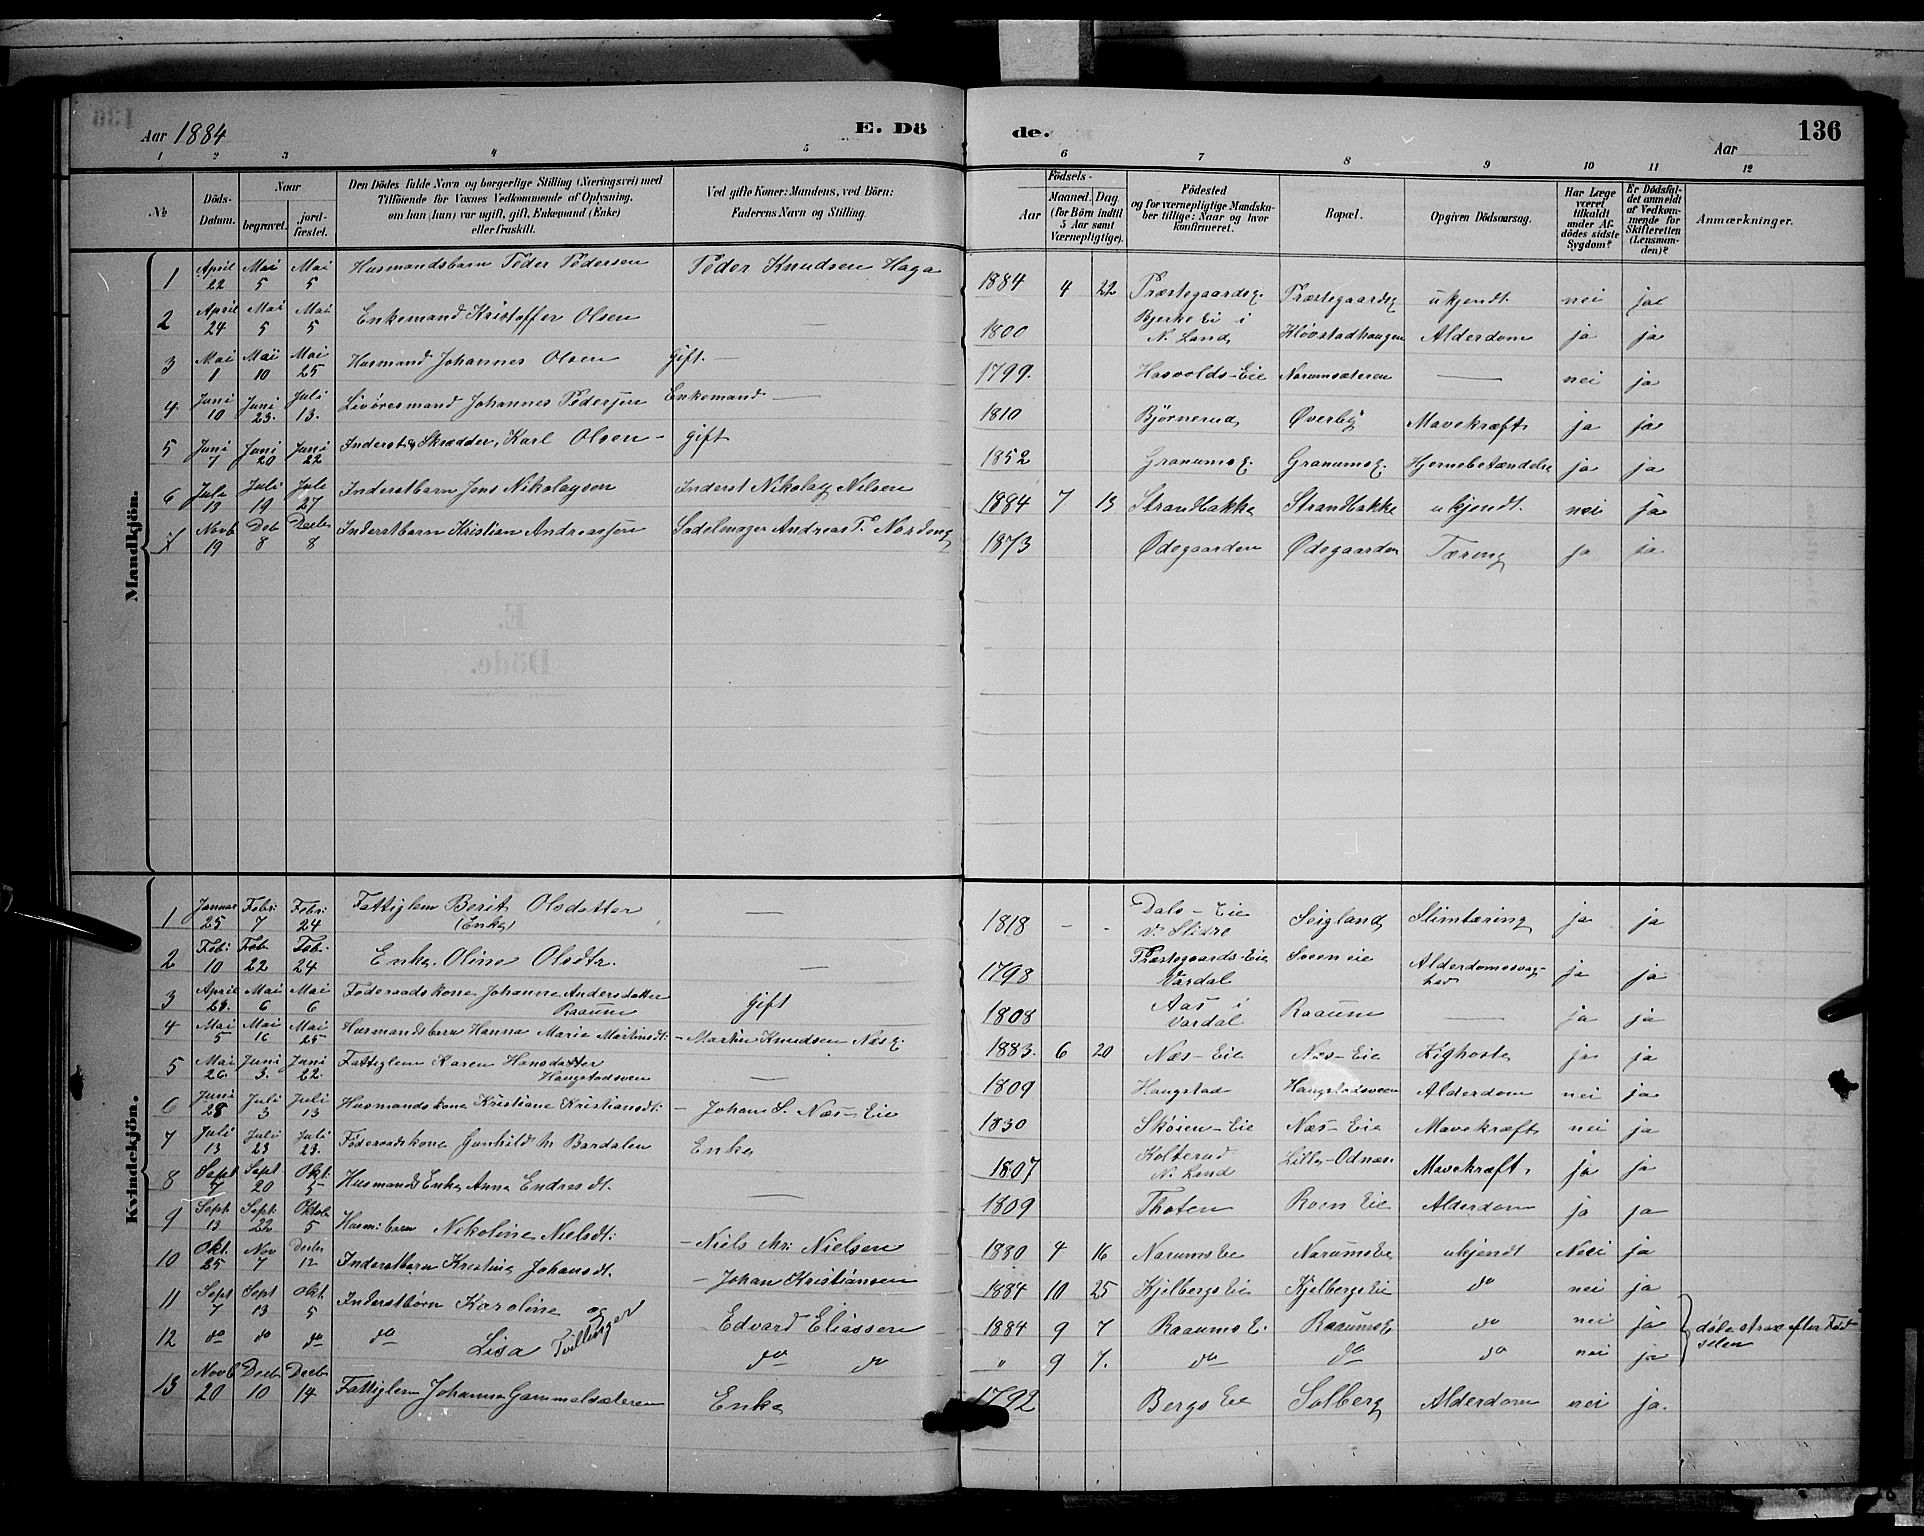 Aar 1884 E. Dö de. Aar 136
1 2 3 4 5 6 7 8 9 10 11 12
No
Döds-Datum.
Naar
begravet.
jord-fæstet.
Den Dödes fulde Navn og borgerlige Stilling (Næringsvei) med
Tilföiende for Voxnes Vedkommende af Oplysning,
om han (hun) var ugift, gift, Enkemand (Enke)
eller fraskilt.
Ved gifte Koner: Mandens, ved Börn:
Faderens Navn og Stilling.
Födsels-
Aar
Maaned. Dag
(for Börn indtil
5 Aar samt
Værnepligtige).
Födested
og for værnepligtige Mandska-
ber tillige: Naar og hvor
konfirmeret.
Bopæl.
Opgiven Dödsaarsag.
Har Læge
været
tilkaldt
under Af-
dödes sidste
Sygdom?
Er Dödsfal-
det anmeldt
af Vedkom-
mende for
Skifteretten
(Lensman-
den)?
Anmærkninger.
Mandkjön.
1 April 22 Mai 5 Mai 5 Husmandsbarn Peder Pedersen Peder Knudsen Haga 1884 4 22 Præstegaardsg. Præstegaardsg ukjendt nei ja
2 April 24 Mai 5 Mai 5 Enkemand Kristoffer Olsen — 1800 Bjerke Ei i N. Land Kløvstadhaugen Alderdom ja ja
3 Mai 1 Mai 10 Mai 25 Husmand Johannes Olsen gift — 1799. Hasvolds-Eie Narumsæteren — nei ja
4 Juni 10 Juni 23. Juli 13. Livøresmand Johannes Pedersen Enkemand — 1810 Bjørnerud Øverby Mavekræft ja ja
5 Juni 7 Juni 20 Juni 22 Inderst Skrædder, Karl Olsen - gift 1852 Granumsg. Granumsg. Hjernebetændelse ja ja
6 Juli 13 Juli 19 Juli 27 Inderstbarn Jens Nikolaysen Inderst Nikolay Nilsen 1884 7 13 Strandbakke Strandbakke ukjendt nei ja
Novb 19 Deb 8 Decbr 8 Inderstbarn Kristian Andreassen Sadelmager Andreas P. Nordeng 1873 Ødegaarden Ødegaarden Tæring ja ja
Kvindekjön.
1 Januar 25 Febr: 7 Febr: 24 Fattiglem Berit Olsdatter (Enke) — 1818 - - Dals-Eie V. Slidre Seigland Slimtæring ja ja
2 Feb: 10 Feb 22 Feb. 24 Enke, Oline Olsdtr. — 1798 Præstegaards-Eie Vardal Soen eie Alderdomssvag-hed ja ja
3 April 28. Mai 6 Mai 6 Føderaadskone Johanne Andersdatter Raaum gift 1808 Aas i Vardal Raaum — ja ja
4 Mai 5 Mai 16 Mai 25 Husmandsbarn Hanna Marie Martinsdt: - Martin Knudsen Næs E. 1883. 6 20 Næs-Eie Næs-Eie Kighoste ja ja
5 Mai 26. Juni 3. Juni 22. Fattiglem Karen Hansdatter Haugstadsveen — 1809 Haugstad Haugstadsveen Alderdom nei ja
6 Juni 28 Juli 3 Juli 13 Husmandskone Kristiane Kristiansdt: - Johan S. Næs-Eie 1830 Skøien-Eie Næs-Eie Mavekræft nei ja
7 Juli 13 Juli 23 Juli 23. Føderaadskone Gunhild Bardalen Enke 1807 Kolterud N. Land Lille-Odnæs. Mavekræft. ja ja
8 Sept 7 Sept 20 Okt. 5 Husmands Enke Anne Endresdt. — 1809 Thoten Roen Eie Alderdom ja ja
9 Sept 13 Sept: 22 Oktob 5 Husm: barn Nikoline Nielsdt: - Niels Chr: Nielsen 1880 4 16 Narumseie Narumseie ukjendt Nei ja
10 Okt. 25 Nov 7 Decbr 12 Inderstbarn Kristine Johansdt. - Johan Kristiansen 1884 10 25 Kjelbergs Eie Kjelbergs Eie do nei ja
11 Sept 7 Sept 13 Okt. 5 Inderstbørn Karoline og Edvard Eliassen 1884 9 7 Raaums E. Raaums E do nei ja døde strax efter Fød-
12 do do do do Lisa Tvillinger do do " 9 7. do do do nei ja selen
13 Novb 20 Decbr 10 Decbr 14 Fattiglem Johanne Gammelsæteren Enke 1792 Bergs Eie Solberg Alderdom nei ja.